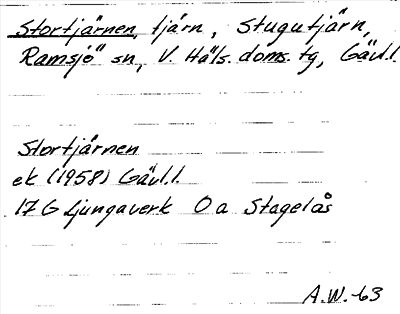 Stortjärnen, tjärn, Stugutjärn,
Ramsjö sn, V. Häls. doms. tg, Gävl.l.
Stortjärnen
ek (1958) Gävl.l.
17 G Ljungaverk 0 a Stagelås
A.W.-63